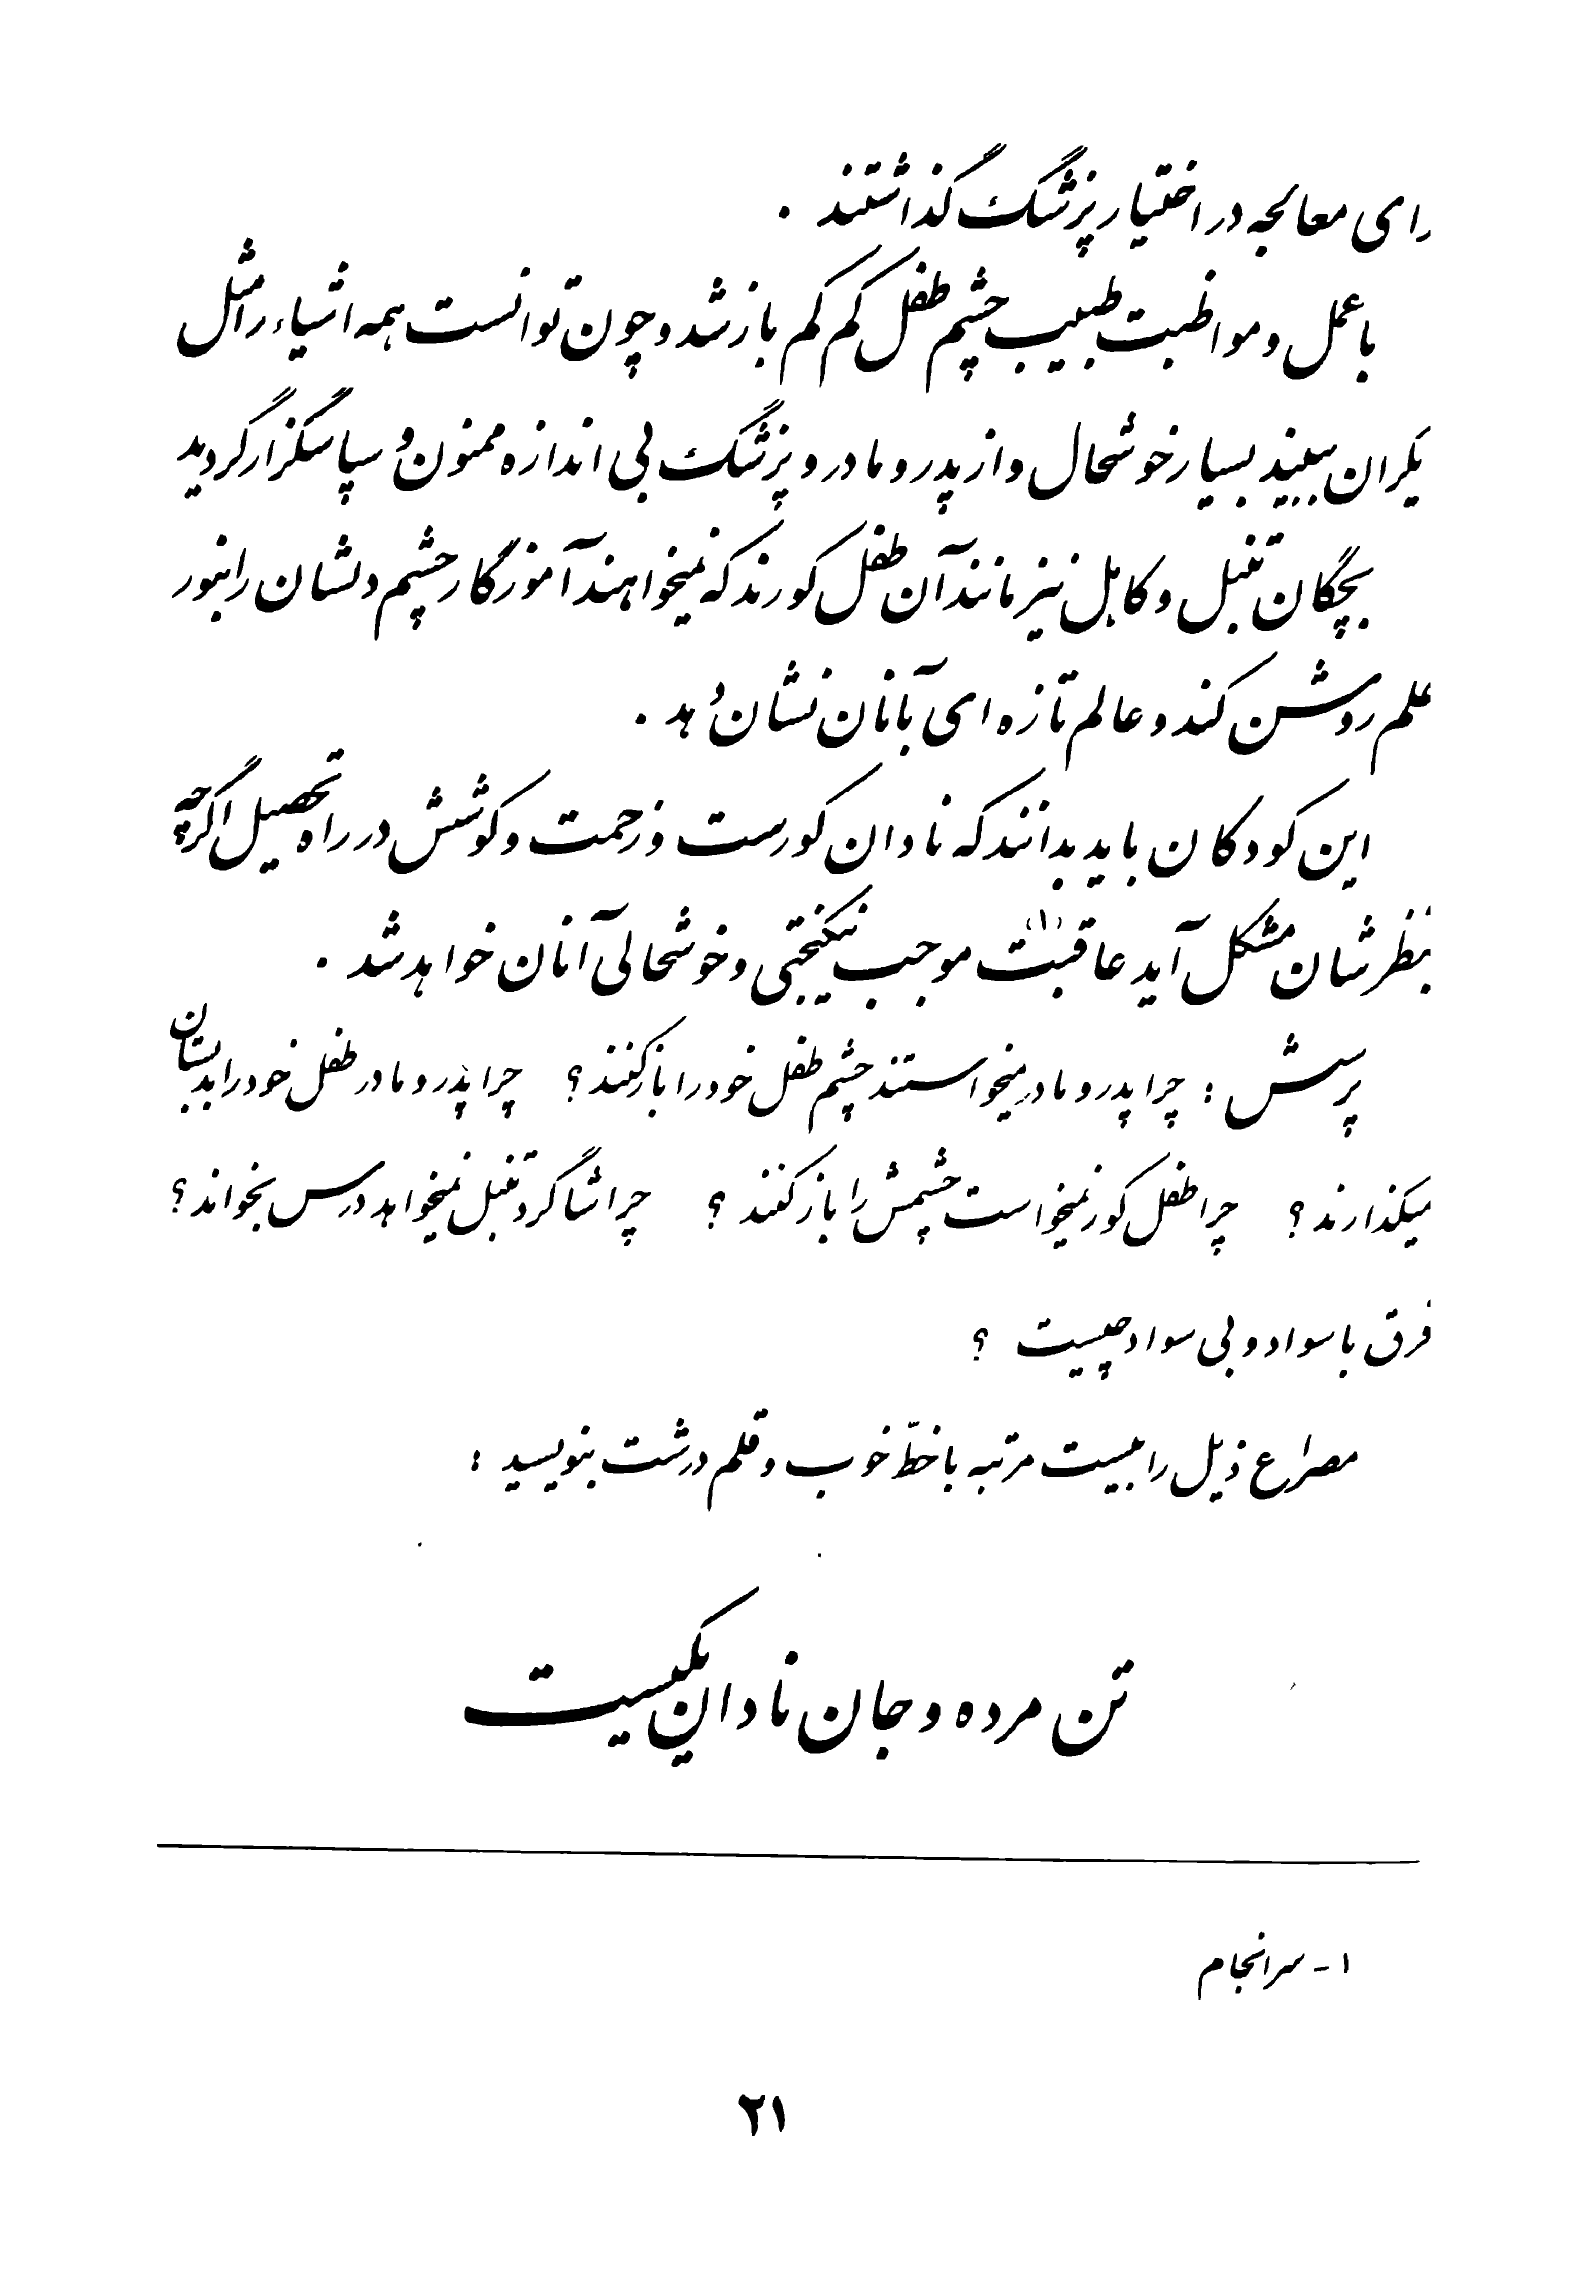 رای معالجه در اختیار پزشک گذاشتند .
با عمل و مواظبت طبیب چشم طفل کم کم باز شد و چون توانست همه اشیاء را مثل
یگران ببیند بسیار خوشحال و از پدر و مادر و پزشک بی اندازه ممنون و سپاسگزار گردید
بچگان تنبل و کاهل نیز مانند آن طفل کورند که نمیخواهند آموزگار چشم دلشان را بنور
علم روشن کند و عالم تازه ای بآنان نشان دهد .
این کودکان باید بدانند که نادان کورست و زحمت و کوشش در راه تحصیل اگرچه
بنظرشان مشکل آید عاقبت (۱) موجب نیکبختی و خوشحالی آنان خواهد شد .
پرسش : چرا پدر و مادر میخواستند چشم طفل خود را باز کنند ؟ چرا پدر و مادر طفل خود را بدبستان
میگذارند ؟ چرا طفل کور نمیخواست چشمش را باز کنند ؟ چرا شاگرد تنبل نمیخواهد درس بخواند ؟
فرق با سواد و بی سواد چیست ؟
مصراع ذیل را بیست مرتبه با خطّ خوب و قلم درشت بنویسید :
تن مرده و جان نادان یکیست
۱ - سرانجام
۲۱